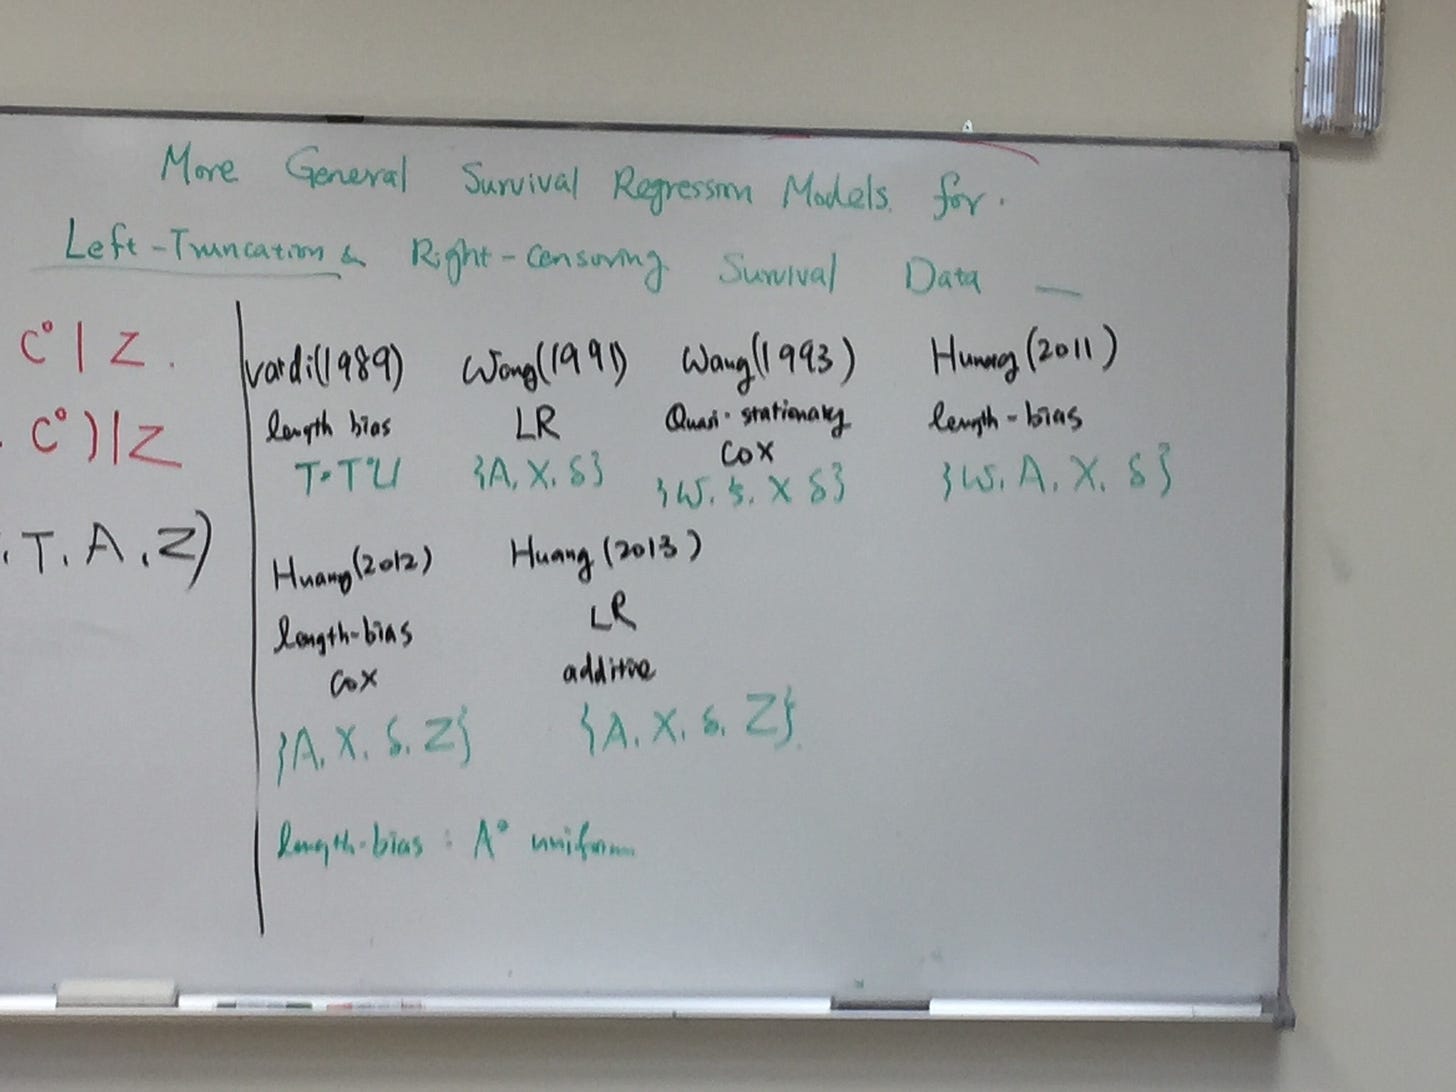 More General Survival Regression Models for.
Left-Truncation & Right-Censoring Survival Data —
C° | Z.
C°) | Z
. T. A. Z)
Vardi(1989)
length bias
T=T°U
Wang(1991)
LR
{A, X, δ}
Wang(1993)
Quasi-stationary
Cox
{W, ξ, X δ}
Huang(2011)
length-bias
{W, A, X, δ}
Huang(2012)
length-bias
Cox
{A, X, δ, Z}
Huang(2013)
LR
additive
{A, X, δ, Z}
length-bias : A° uniform